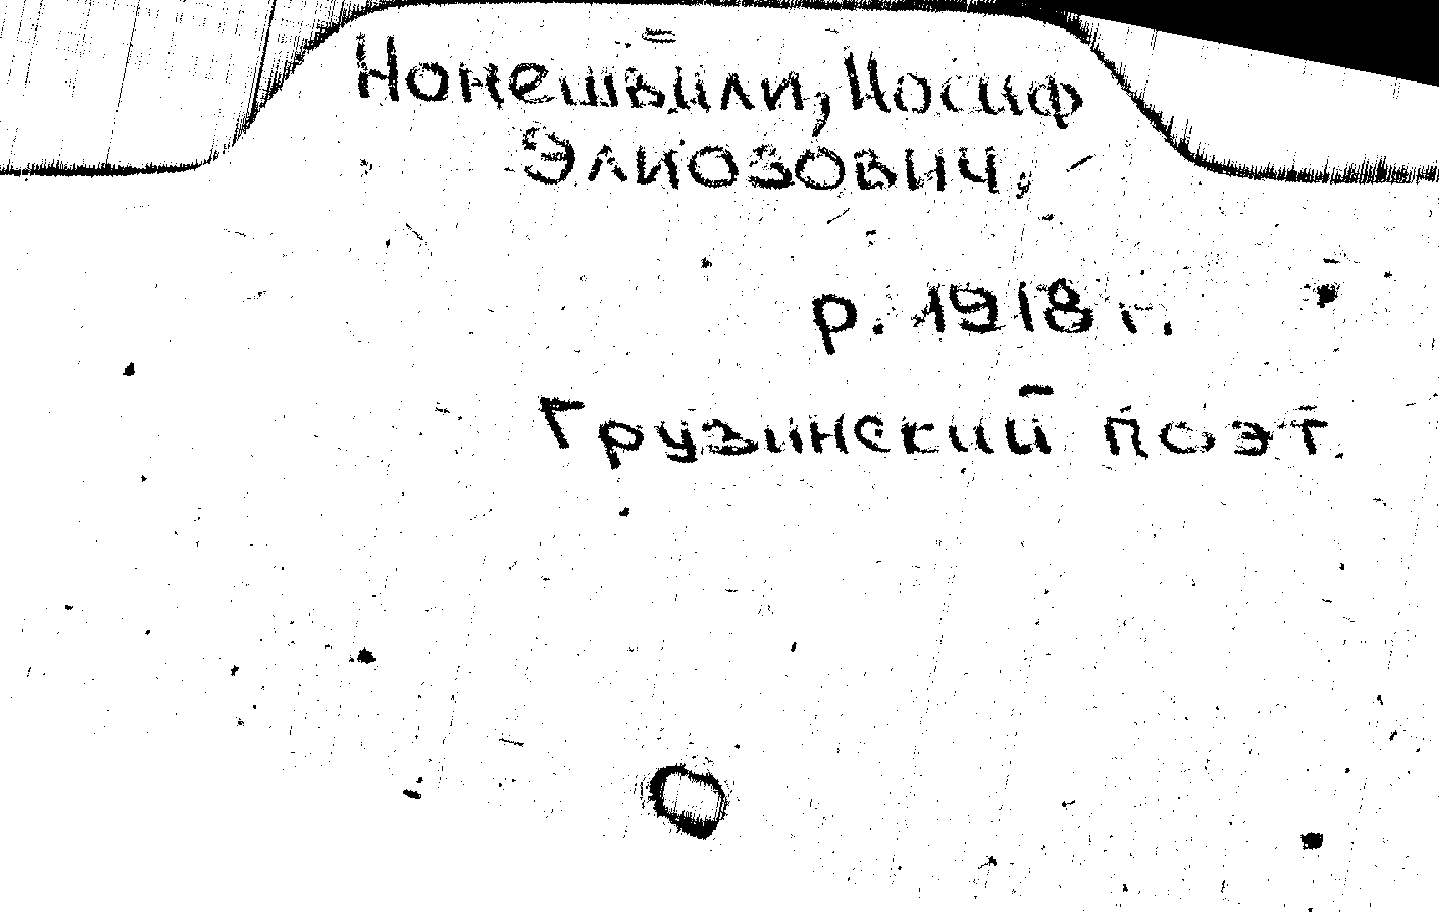 Нонешвили, Иосиф
Элиозович,
р. 1918 г.
Грузинский поэт.